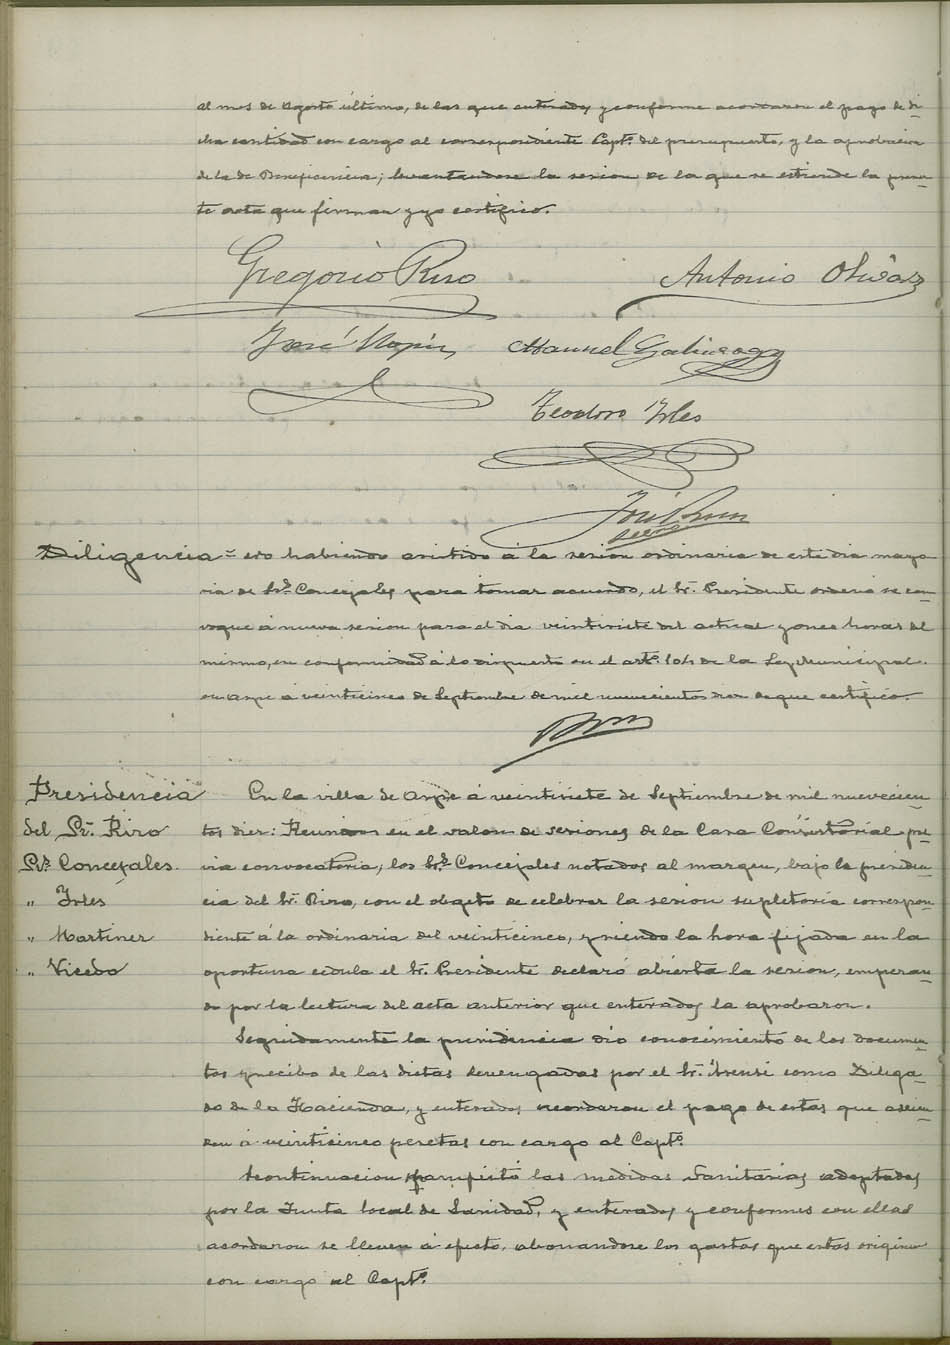 al mes de Agosto último, de las que enterados y conforme acordaron el pago de di-
cha cantidad con cargo al correspondiente Capt.º del presupuesto, y la aprobacion
de la de Beneficencia; levantandose la sesion de la que se estiende la presen-
te acta que firman y yo certifico.
Gregorio Rizo Antonio Olivares
José Manuel
Teodoro Irles
José
Diligencia = No habiendo asistido á la sesion ordinaria de este dia mayo-
ria de Srs. Concejales para tomar acuerdo, el Sr. Presidente ordenó se con-
voque á nueva sesion para el dia veintisiete del actual y once horas del
mismo, en conformidad á lo dispuesto en el artº 104 de la Ley Municipal.
en Aspe á veinticinco de Septiembre de mil nuevecientos diez de que certifico.
Presidencia
del Sr. Rizo
Srs. Concejales.
" Irles
" Martinez
" Vicedo
En la villa de Aspe á veintisiete de Septiembre de mil nuevecien-
tos diez: Reunidos en el salon de sesiones de la Casa Consistorial pre-
via convocatoria, los Srs. Concejales notados al margen, bajo la presiden-
cia del Sr. Rizo, con el objeto de celebrar la sesion supletoria correspon-
diente á la ordinaria del veinticinco, y siendo la hora fijada en la
oportuna cédula el Sr. Presidente declaró abierta la sesion, empezan-
do por la lectura del acta anterior que enterados la aprobaron.
Seguidamente la presidencia dió conocimiento de los documen-
tos y recibo de las dietas devengadas por el Sr. Asensi como Delega-
do de la Hacienda, y enterados acordaron el pago de estas que ascien-
den á veinticinco pesetas con cargo al Capt.º
Acontinuacion manifestó las medidas sanitarias adoptadas
por la Junta local de Sanidad, y enterados y conformes con ellas
acordaron se lleven á efecto, abonandose los gastos que estas originen
con cargo al Capt.º